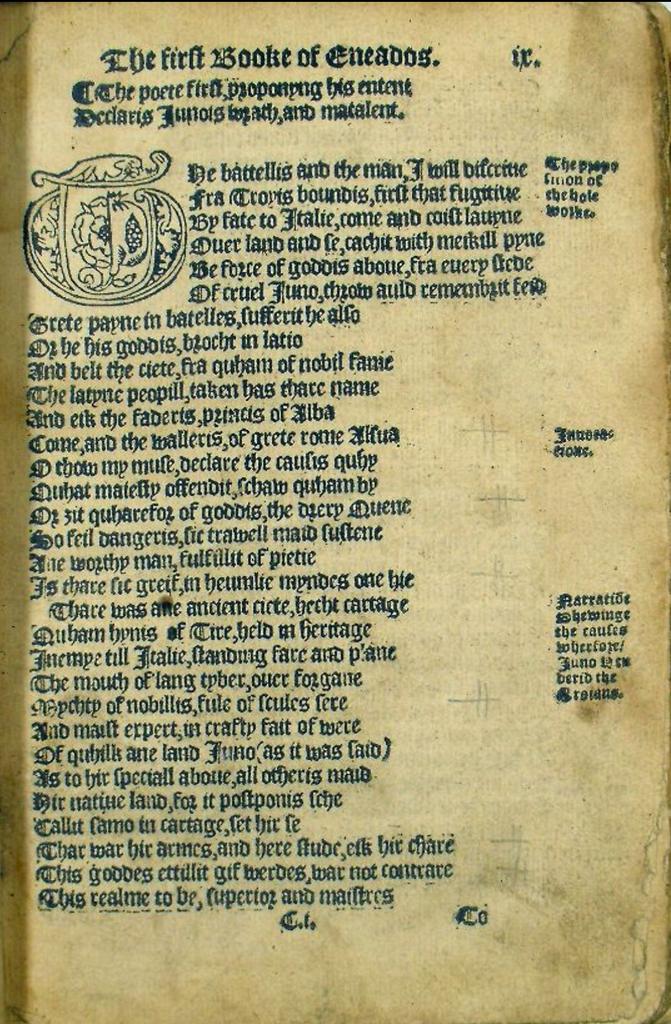 The first Booke of Eneados. ix.
¶ The poete first, proponyng his entent
Declaris Junois wrath, and matalent.
The battellis and the man, I will discriue
Fra Troyis boundis, first that fugitiue
By fate to Italie, come and coist lauyne
Ouer land and se, cachit with meikill pyne
Be force of goddis aboue, fra euery stede
Of cruel Juno, throw auld remembrit feid
Grete payne in batelles, sufferit he also
Or he his goddis, brocht in latio
And belt the ciete, fra quham of nobil fame
The latyne peopill, taken has thare name
And eik the faderis, princis of Alba
Come, and the walleris, of grete rome Alsua
O thow my muse, declare the causis quhy
Quhat maiesty offendit, schaw quham by
Or zit quharefor of goddis, the drery Quene
So feil dangeris, sic trawell maid sustene
Ane worthy man, fulfillit of pietie
Is thare sic greif, in heuinlie myndes one hie
Thare was ane ancient ciete, hecht cartage
Quham hynis of Tire, held in heritage
Inemye till Italie, standing fare and plane
The mouth of lang tyber, ouer forgane
Mychty of nobillis, fule of scules sere
And maist expert, in crafty fait of were
Of quhilk ane land Juno (as it was said)
As to hir speciall aboue, all otheris maid
Hir natiue land, for it postponis sche
Callit samo in cartage, set hir se
Thar war hir armes, and here stude, eik hir chare
This goddes ettillit gif werdes, war not contrare
This realme to be, superior and maistres
C.i. To
The propo
sition of
the hole
worke.
Inuoca-
tione.
Narratiõ
Shewinge
the causes
wherfore/
Juno
derid the
Troians.